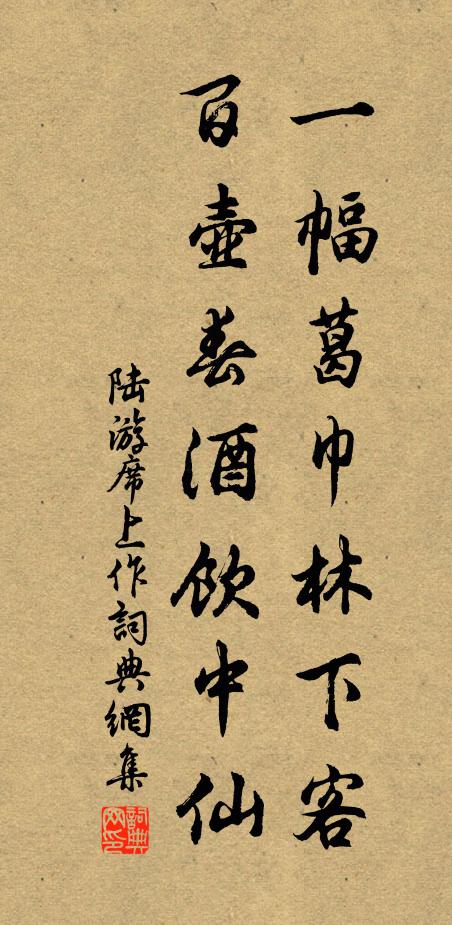 一幅葛巾林下客
百壺春酒飲中仙
陆游席上作詞典網集
詞典網印